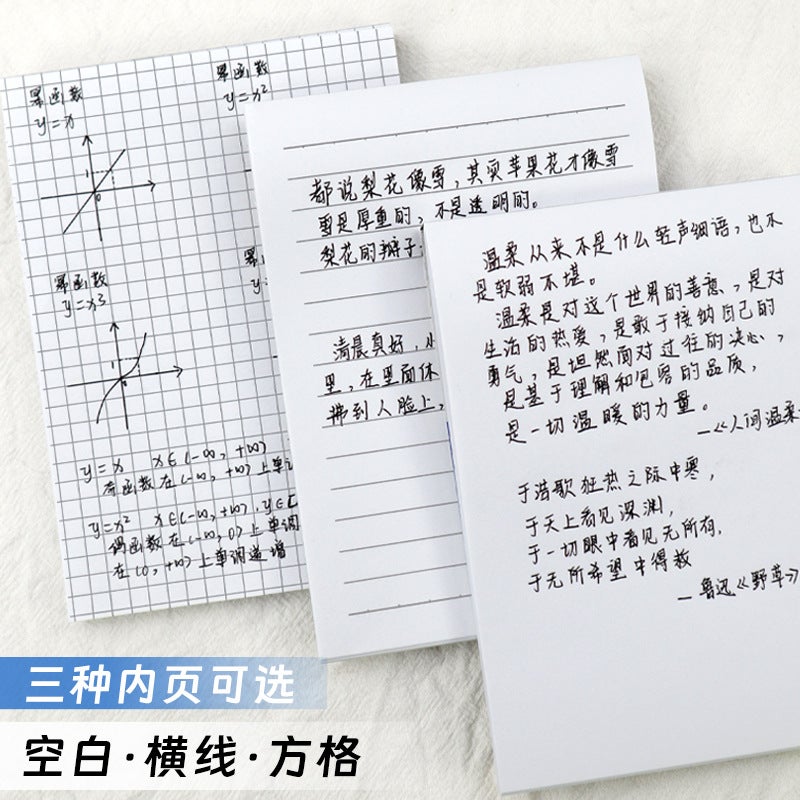 幂函数
y=x
幂函数
y=x²
幂函数
y=x3
y=x x∈(-∞,+∞)
奇函数在(-∞,+∞)上单调
y=x² x∈(-∞,+∞),y∈[
偶函数在(-∞,0)上单调
在(0,+∞)上单调递增
都说梨花像雪,其实苹果花才像雪
雪是厚重的,不是透明的。
梨花的瓣子
清晨真好,小
里,在里面休
拂到人脸上,
温柔从来不是什么轻声细语,也不
是软弱不堪。
温柔是对这个世界的善意,是对
生活的热爱,是敢于接纳自己的
勇气,是坦然面对过往的决心,
是基于理解和包容的品质,
是一切温暖的力量。
—《人间温柔
于浩歌狂热之际中寒,
于天上看见深渊,
于一切眼中看见无所有,
于无所希望中得救
—鲁迅《野草》
三种内页可选
空白·横线·方格